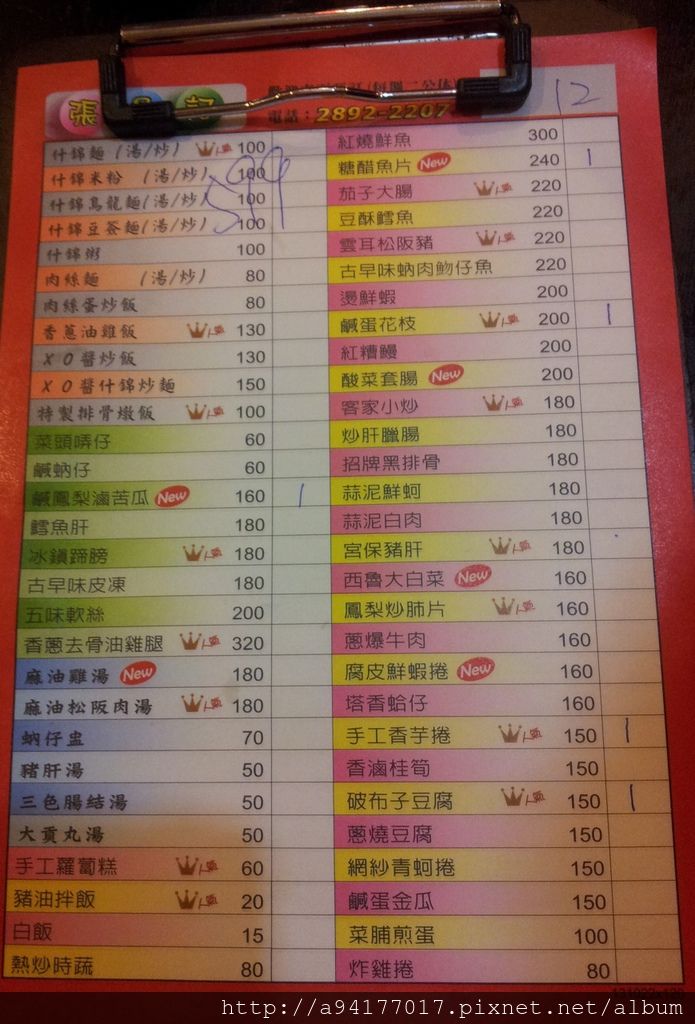 張
記
電話：2892-2207
12
什錦麵（湯/炒） 人氣 100
什錦米粉 （湯/炒） 100
什錦烏龍麵(湯/炒) 100
什錦豆簽麵(湯/炒) 100
599
什錦粥 100
肉絲麵 （湯/炒） 80
肉絲蛋炒飯 80
香蔥油雞飯 人氣 130
XO醬炒飯 130
XO醬什錦炒麵 150
特製排骨燉飯 人氣 100
菜頭嘜仔 60
鹹蚋仔 60
鹹鳳梨滷苦瓜 New 160 1
鱈魚肝 180
冰鎮蹄膀 人氣 180
古早味皮凍 180
五味軟絲 200
香蔥去骨油雞腿 人氣 320
麻油雞湯 New 180
麻油松阪肉湯 人氣 180
蚋仔盅 70
豬肝湯 50
三色腸結湯 50
大貢丸湯 50
手工蘿蔔糕 人氣 60
豬油拌飯 人氣 20
白飯 15
熱炒時蔬 80
紅燒鮮魚 300
糖醋魚片 New 240 1
茄子大腸 人氣 220
豆酥鱈魚 220
雲耳松阪豬 人氣 220
古早味蚋肉魩仔魚 220
燙鮮蝦 200
鹹蛋花枝 人氣 200 1
紅糟鰻 200
酸菜套腸 New 200
客家小炒 人氣 180
炒肝臘腸 180
招牌黑排骨 180
蒜泥鮮蚵 180
蒜泥白肉 180
宮保豬肝 人氣 180
西魯大白菜 New 160
鳳梨炒肺片 人氣 160
蔥爆牛肉 160
腐皮鮮蝦捲 New 160
塔香蛤仔 160
手工香芋捲 人氣 150 1
香滷桂筍 150
破布子豆腐 人氣 150 1
蔥燒豆腐 150
網紗青蚵捲 150
鹹蛋金瓜 150
菜脯煎蛋 100
炸雞捲 80
http://a94177017.pixnet.net/album